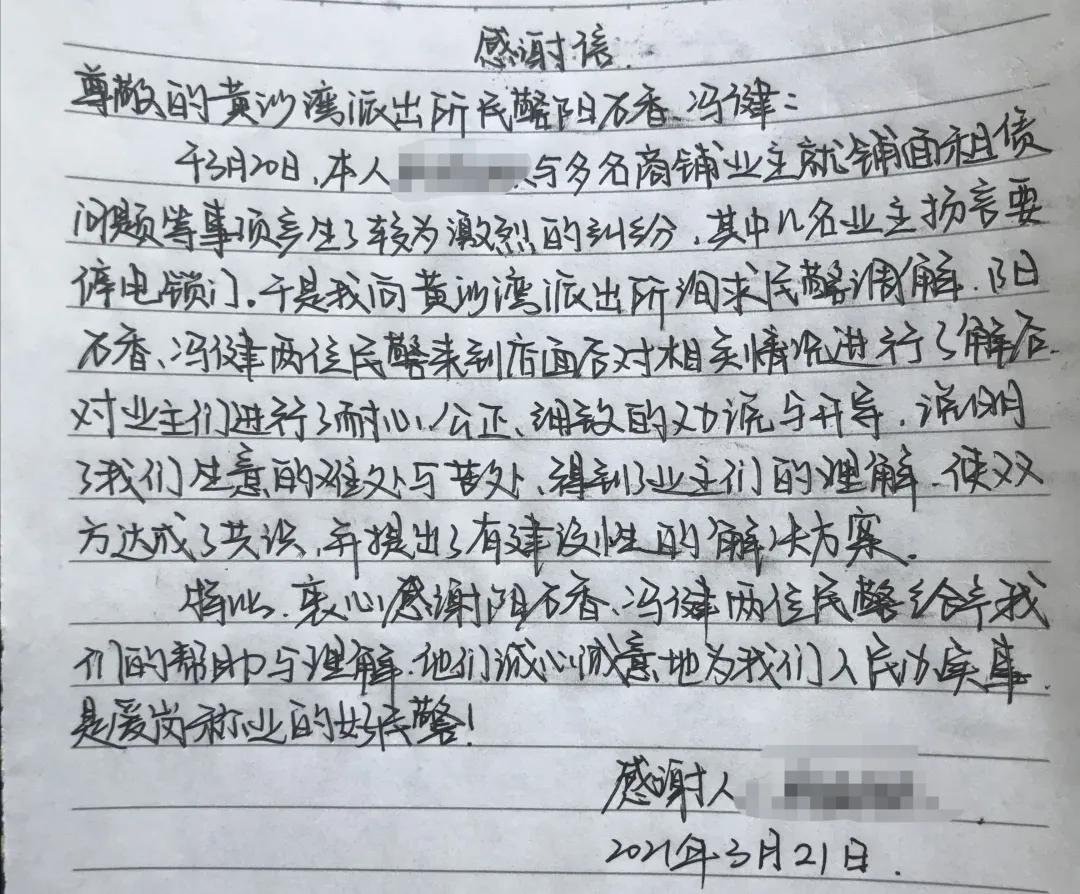 感谢信.
尊敬的黄沙湾派出所民警阳石香、冯健：
于3月20日，本人与多名商铺业主就铺面租债
问题等事项产生了较为激烈的纠纷，其中几名业主扬言要
停电锁门。于是我向黄沙湾派出所询求民警调解，阳
石香、冯健两位民警来到店面后对相关情况进行了解后，
对业主们进行了耐心、公正、细致的劝说与开导，说明
了我们生意的难处与苦处，得到了业主们的理解，使双
方达成了共识，并提出了有建设性的解决方案。
特此，衷心感谢阳石香、冯健两位民警给予我
们的帮助与理解，他们诚心诚意地为我们人民办实事，
是爱岗称业的好民警！
感谢人
2021年3月21日.